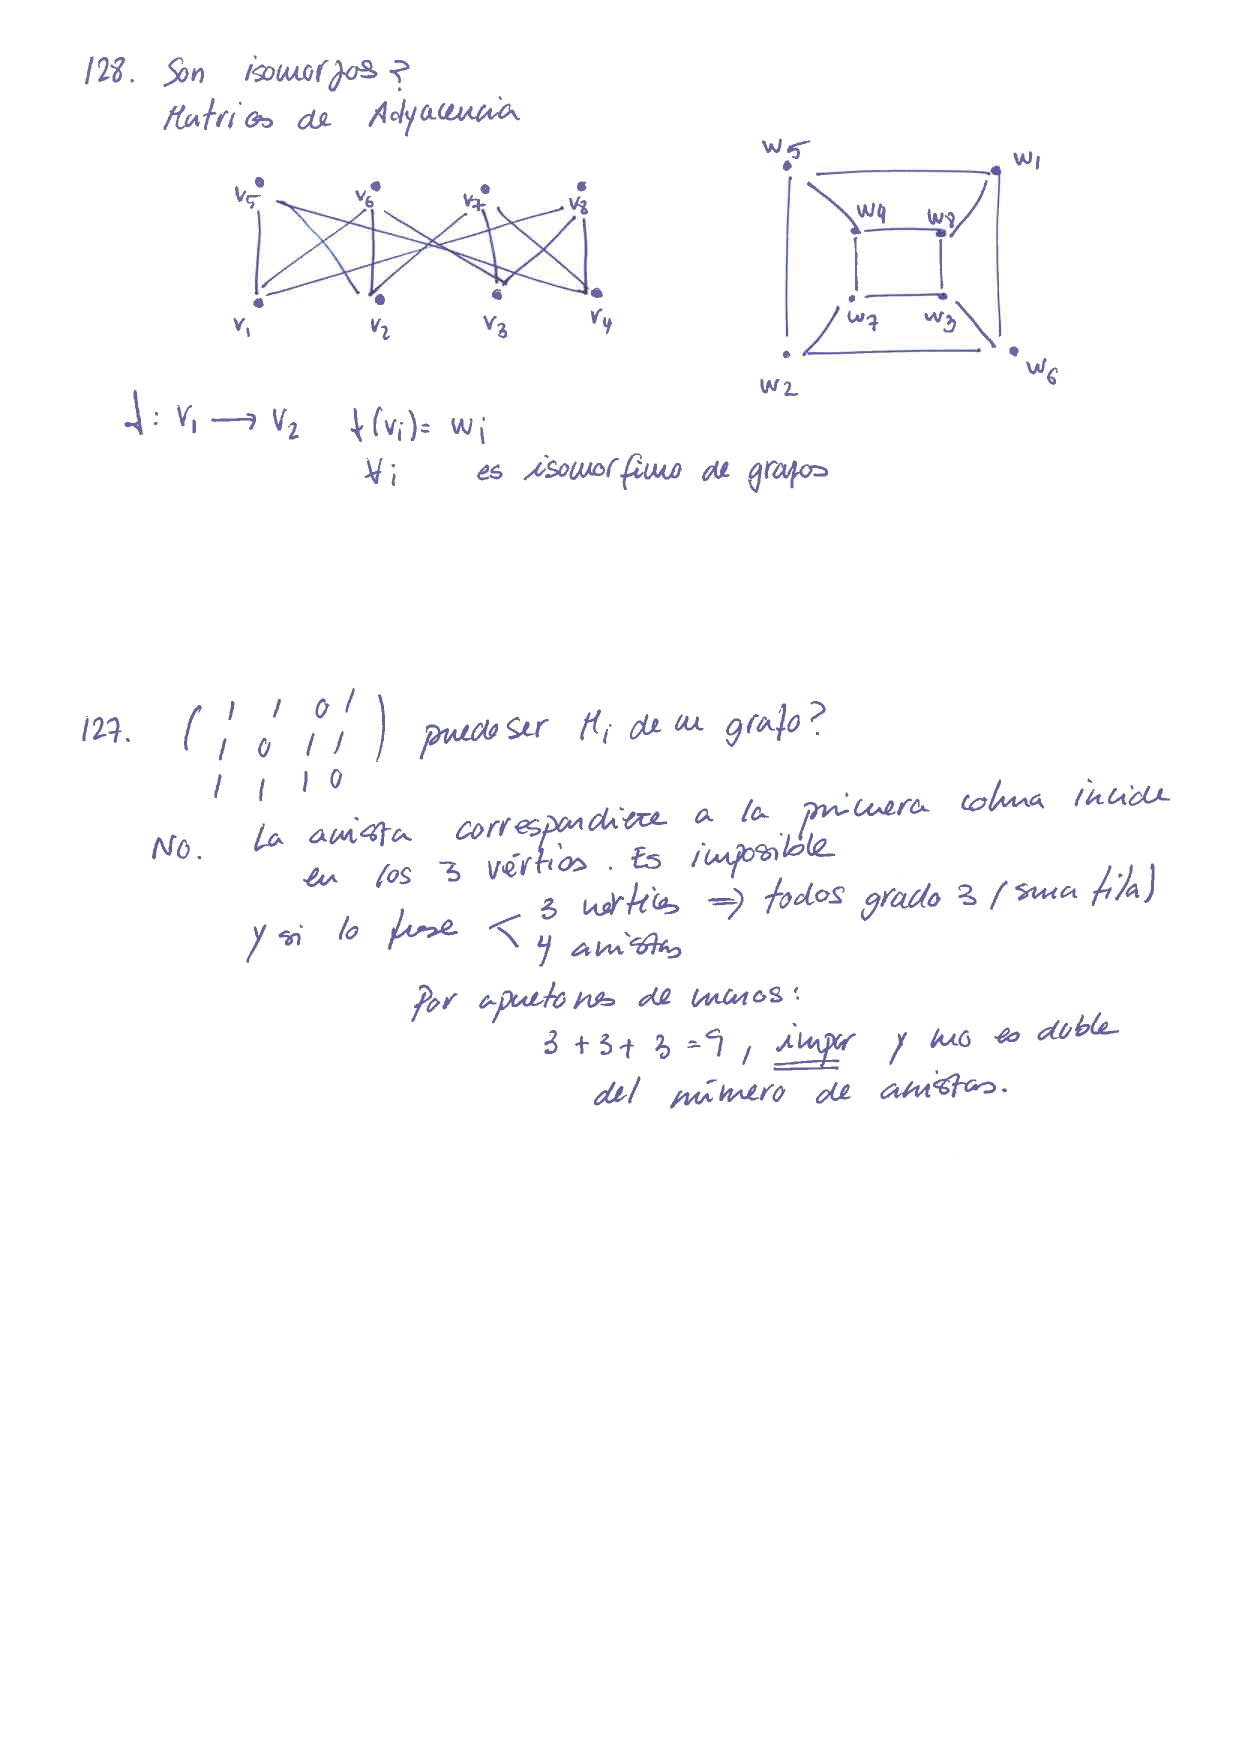 128. Son isomorfos?
Matrices de Adyacencia
v5 v6 v7 v8
v1 v2 v3 v4
w5 w1
w4 w8
w7 w3
w2 w6
f: V1 → V2 f(vi) = wi
∀i es isomorfismo de grafos
127. ( 1 1 0 1 ) puede ser Mi de un grafo?
1 0 1 1
1 1 1 0
No. La arista correspondiente a la primera columna incide
en los 3 vértices. Es imposible
y si lo fuese < 3 vértices ⇒ todos grado 3 (suma fila)
4 aristas
Por apretones de manos:
3 + 3 + 3 = 9, impar y no es doble
del número de aristas.